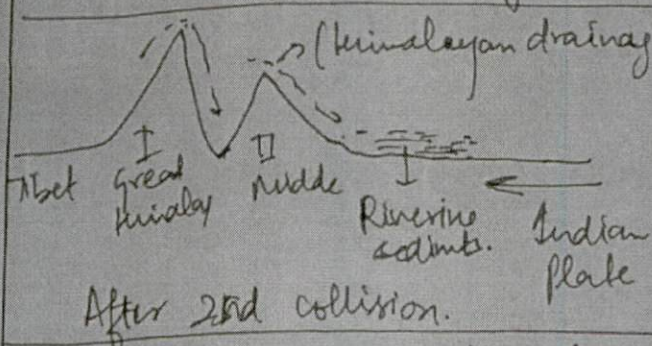 (Himalayan drainag
I
II
Tibet Great Middle
Himalay
Riverine
sedimts.
Indian
Plate
After 2nd collision.